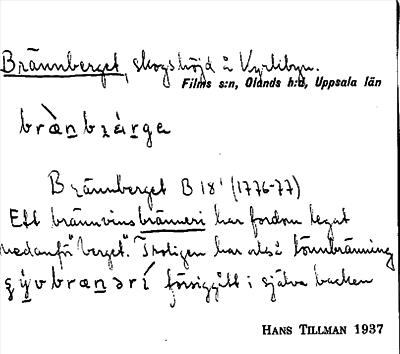 Brännberget, skogshöjd å Vyrlebyn.
Films s:n, Olands h:d, Uppsala län
bræ̀nbz̨árga
Brännberget B 18' (1776-77)
Ett brännvinsbränneri har fordom legat
nedanför "berget". Troligen har också tjärnbränning
försiggått i själva backen
HANS TILLMAN 1937